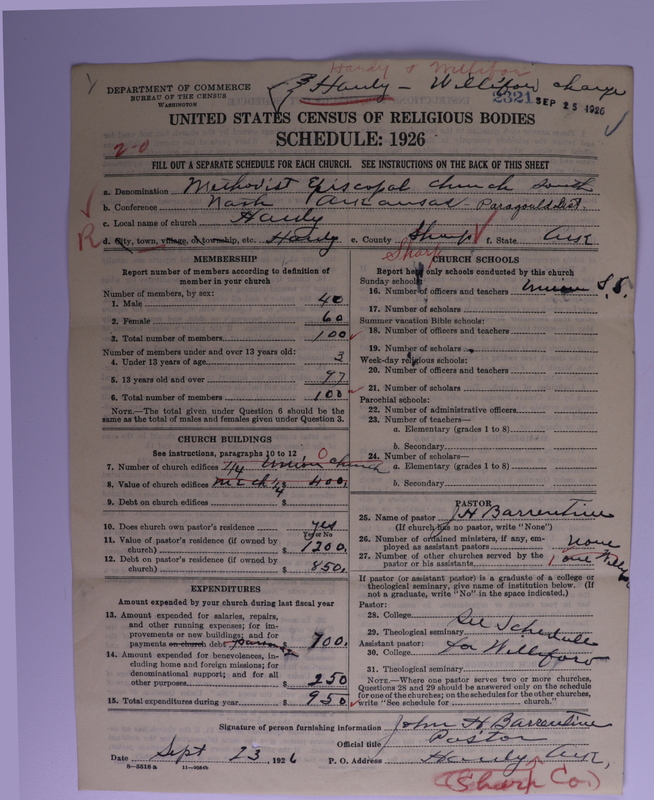 Hardy + Williford
DEPARTMENT OF COMMERCE
BUREAU OF THE CENSUS
WASHINGTON
Hardy – Williford charge
2321 SEP 25 1926
UNITED STATES CENSUS OF RELIGIOUS BODIES
SCHEDULE: 1926
2-0
FILL OUT A SEPARATE SCHEDULE FOR EACH CHURCH. SEE INSTRUCTIONS ON THE BACK OF THIS SHEET
a. Denomination Methodist Episcopal church south
b. Conference North Arkansas - Paragould Dist.
c. Local name of church Hardy
R
d. City, town, village, or township, etc. Hardy e. County Sharp f. State Ark
Sharp
MEMBERSHIP
Report number of members according to definition of
member in your church
Number of members, by sex:
1. Male 40
2. Female 60
3. Total number of members 100
Number of members under and over 13 years old:
4. Under 13 years of age 3
5. 13 years old and over 97
6. Total number of members 100
NOTE.—The total given under Question 6 should be the
same as the total of males and females given under Question 3.
CHURCH BUILDINGS
See instructions, paragraphs 10 to 12
0
7. Number of church edifices 1/4 Union church
8. Value of church edifices 1/4 $ 400.
9. Debt on church edifices $
10. Does church own pastor's residence yes
Yes or No
11. Value of pastor's residence (if owned by
church) $ 1200.
12. Debt on pastor's residence (if owned by
church) $ 850.
EXPENDITURES
Amount expended by your church during last fiscal year
13. Amount expended for salaries, repairs,
and other running expenses; for im-
provements or new buildings; and for
payments on church debt $ 700.
14. Amount expended for benevolences, in-
cluding home and foreign missions; for
denominational support; and for all
other purposes $ 250
15. Total expenditures during year $ 950
CHURCH SCHOOLS
Report here only schools conducted by this church
Sunday schools:
16. Number of officers and teachers Union S.S.
17. Number of scholars
Summer vacation Bible schools:
18. Number of officers and teachers
19. Number of scholars
Week-day religious schools:
20. Number of officers and teachers
21. Number of scholars
Parochial schools:
22. Number of administrative officers
23. Number of teachers—
a. Elementary (grades 1 to 8)
b. Secondary
24. Number of scholars—
a. Elementary (grades 1 to 8)
b. Secondary
PASTOR
25. Name of pastor J H Barrentine
(If church has no pastor, write "None")
26. Number of ordained ministers, if any, em-
ployed as assistant pastors none
27. Number of other churches served by the
pastor or his assistants 1 one
If pastor (or assistant pastor) is a graduate of a college or
theological seminary, give name of institution below. (If
not a graduate, write "No" in the space indicated.)
Pastor:
28. College
See Schedule
29. Theological seminary
Assistant pastor: for Williford
30. College
31. Theological seminary
NOTE.—Where one pastor serves two or more churches,
Questions 28 and 29 should be answered only on the schedule
for one of the churches; on the schedules for the other churches
write "See schedule for church."
Signature of person furnishing information John H Barrentine
Official title Pastor
Date Sept 23, 1926 P. O. Address Hardy Ark,
8-5518 a
(Sharp Co.)